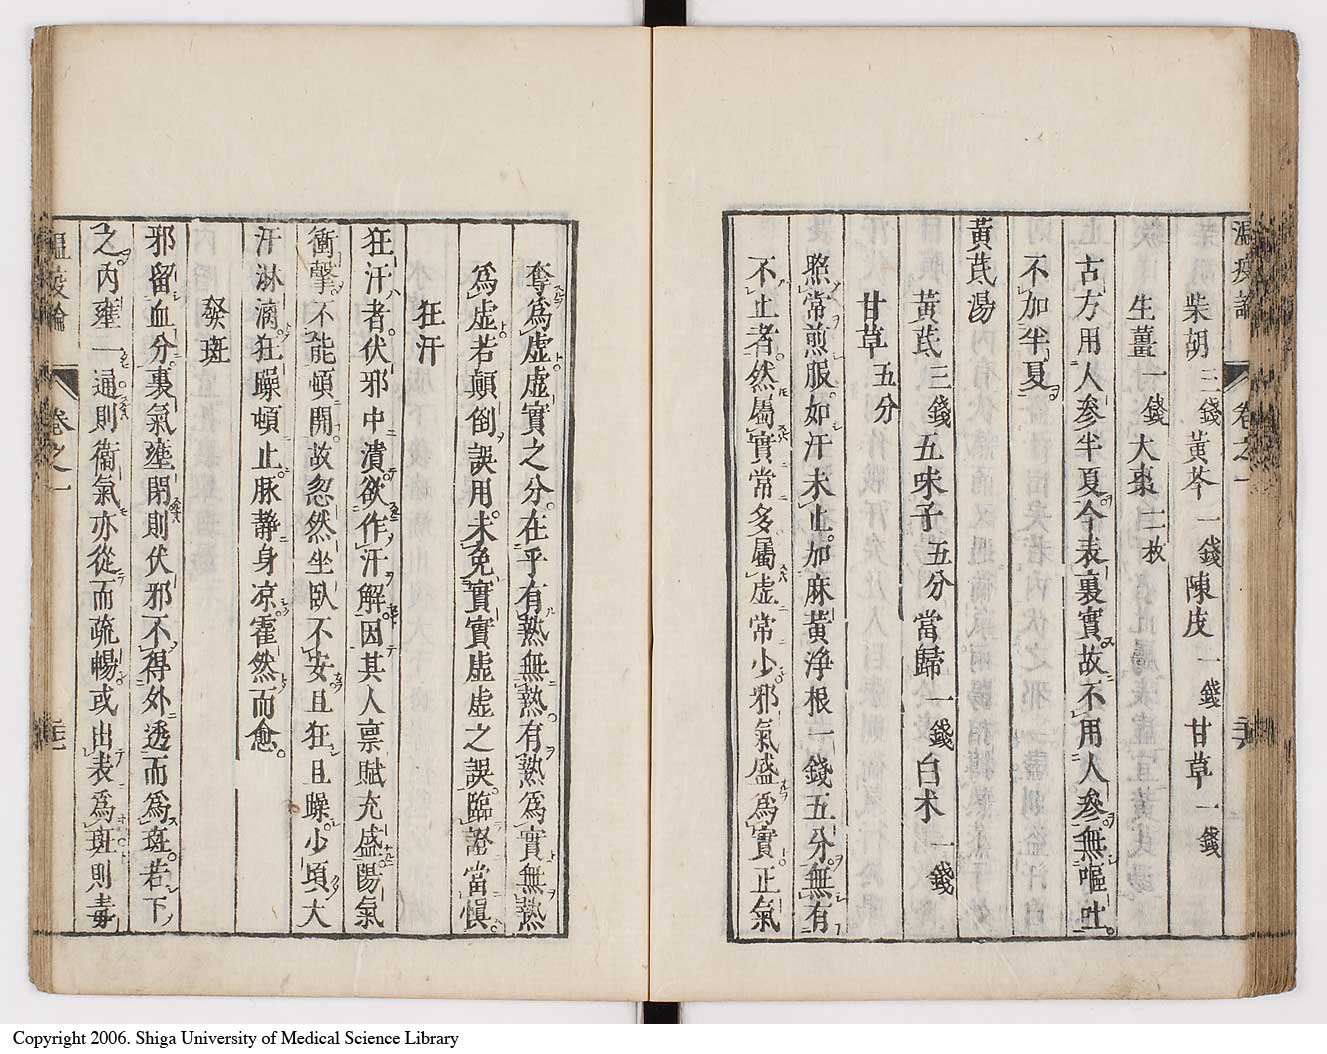 溫疫論 卷之一
柴胡 三錢 黃芩 一錢 陳皮 一錢 甘草 一錢
生薑 一錢 大棗 二枚
古方用人參半夏今表裏實故不用人參無嘔吐
不加半夏
黃芪湯
黃芪 三錢 五味子 五分 當歸 一錢 白朮 一錢
甘草 五分
照常煎服如汗未止加麻黃淨根一錢五分無有
不止者然屬實常多屬虛常少邪氣盛爲實正氣
奪爲虛虛實之分在乎有熱無熱有熱爲實無熱
爲虛若顛倒誤用未免實實虛虛之誤臨證當愼
狂汗
狂汗者伏邪中潰欲作汗解因其人禀賦充盛陽氣
衝擊不能頓開故忽然坐臥不安且狂且躁少頃大
汗淋漓狂躁頓止脉靜身凉霍然而愈
發斑
邪留血分裏氣壅閉則伏邪不得外透而爲斑若下
之內壅一通則衞氣亦從而疏暢或出表爲斑則毒
溫疫論 卷之一
Copyright 2006. Shiga University of Medical Science Library